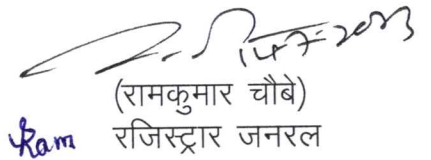 14-7-2023
(रामकुमार चौबे)
Ram रजिस्ट्रार जनरल